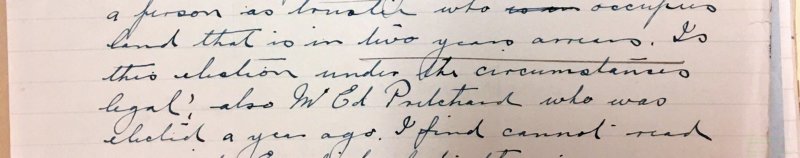 a person as trustee who is on occupies
land that is in two years arrears. Is
this election under the circumstances
legal, also Mr Ed Pritchard who was
elected a year ago. I find cannot read